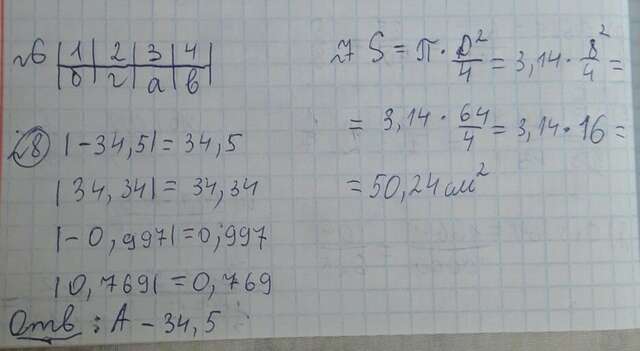 №6 | 1 | 2 | 3 | 4 |
| б | г | а | в |
№8 |-34,5| = 34,5
|34,34| = 34,34
|-0,997| = 0,997
|0,769| = 0,769
Отв: А - 34,5
№7 S = π · D²/4 = 3,14 · 8²/4 =
= 3,14 · 64/4 = 3,14 · 16 =
= 50,24 см²